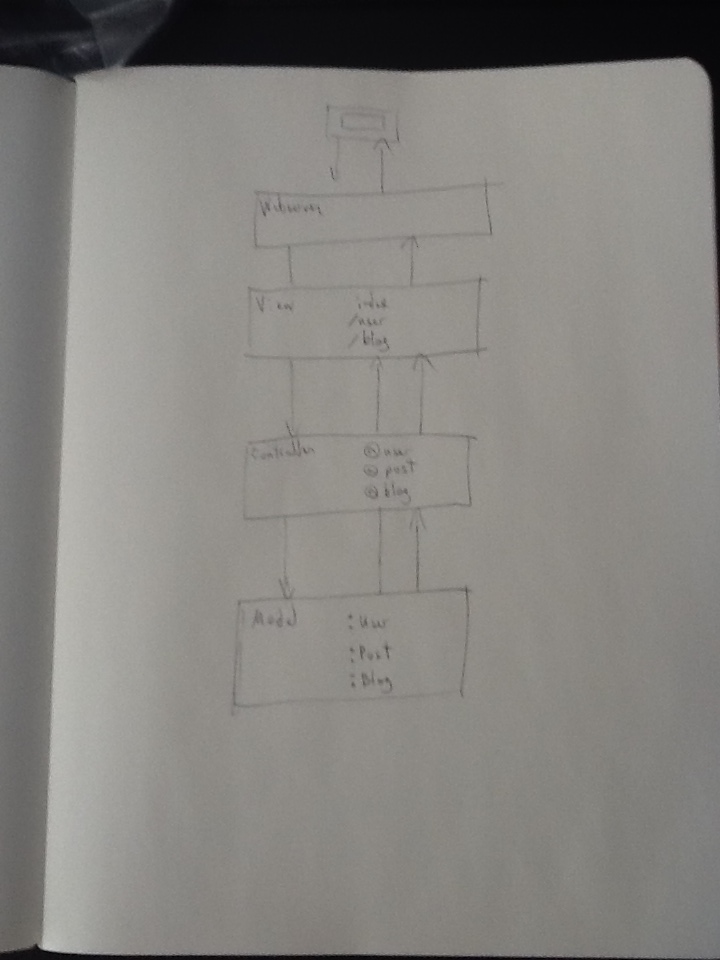 Webserver
View index
/user
/blog
Controller @user
@post
@blog
Model :User
:Post
:Blog